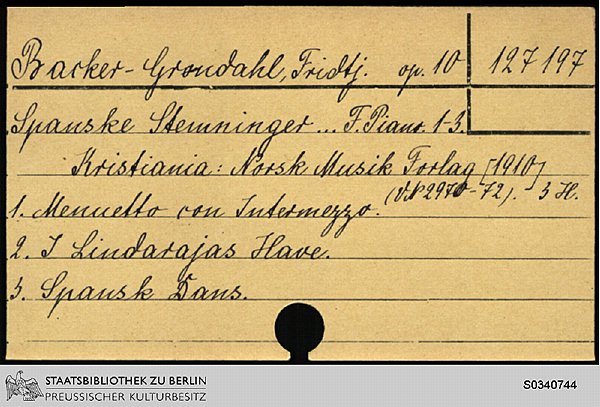 Backer-Grondahl, Fridtj. op. 10 127 197
Spanske Stemninger ... F. Piano. 1-3.
Kristiania: Norsk Musik Forlag [1910]
(VN 2970-72). 3 H.
1. Menuetto con Intermezzo.
2. I Lindarajas Have.
3. Spansk Dans.
STAATSBIBLIOTHEK ZU BERLIN
PREUSSISCHER KULTURBESITZ
S0340744